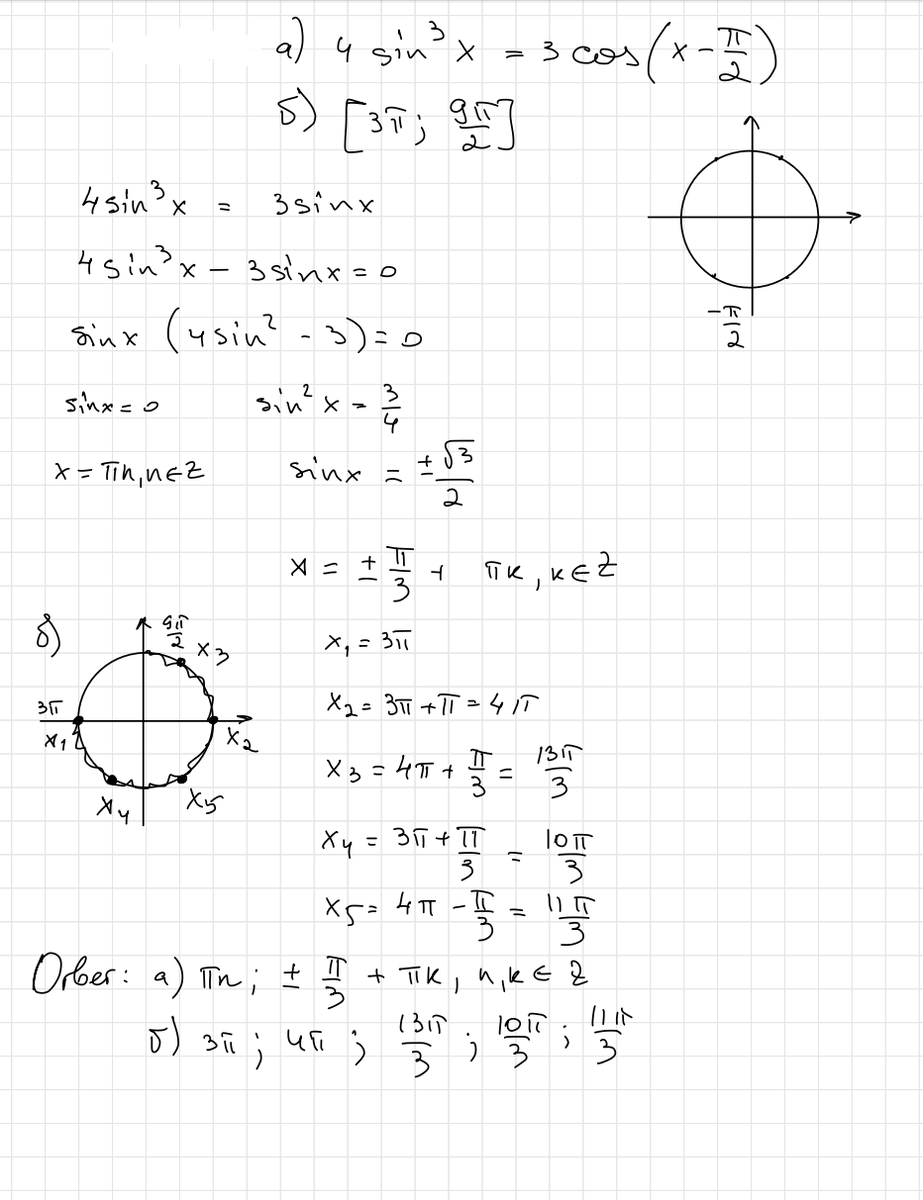 а) 4 sin³ x = 3 cos(x - π/2)
б) [3π; 9π/2]
4sin³x = 3sinx
4sin³x - 3sinx = 0
sinx (4sin² - 3) = 0
-π/2
sinx = 0 sin²x = 3/4
x = πn, n∈Z sinx = ±√3/2
x = ±π/3 + πk, k∈Z
б) 9π/2 x3
3π x1 x2
x4 x5
x₁ = 3π
x₂ = 3π + π = 4π
x₃ = 4π + π/3 = 13π/3
x₄ = 3π + π/3 = 10π/3
x5 = 4π - π/3 = 11π/3
Ответ: а) πn; ± π/3 + πk, n,k ∈ Z
б) 3π; 4π; 13π/3; 10π/3; 11π/3